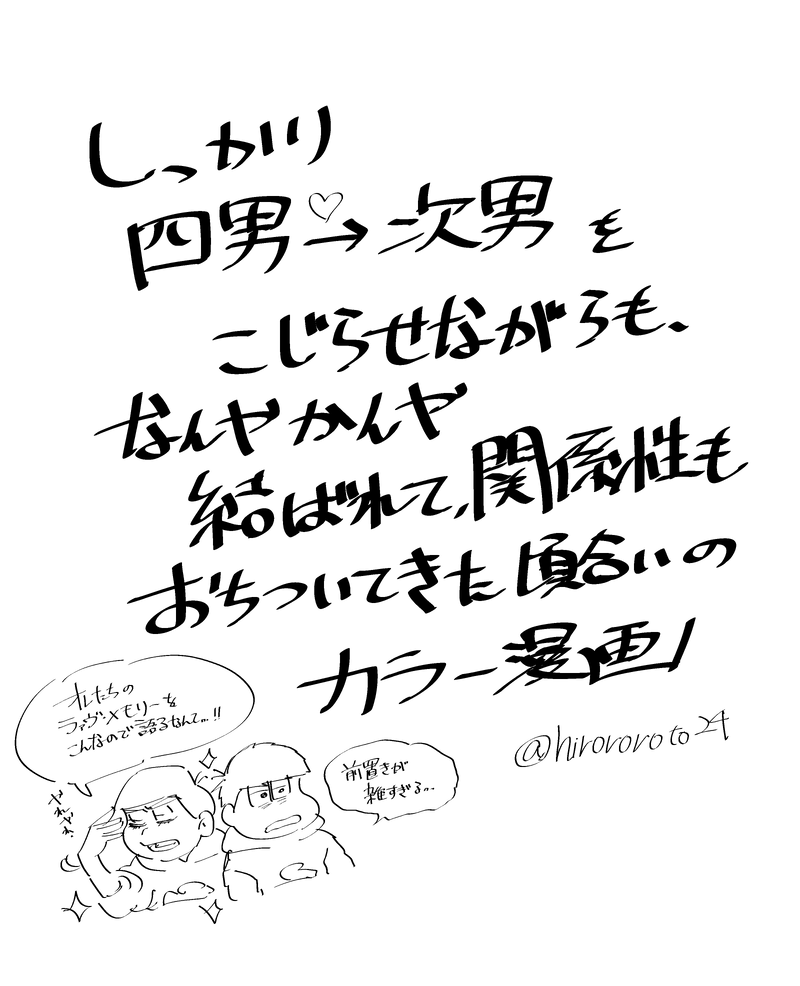 しっかり
四男♡→次男を
こじらせながらも、
なんやかんや
結ばれて、関係性も
おちついてきた頃合いの
カラー漫画!
@hirororoto24
オレたちの
ラヴ・メモリーを
こんなので語るなんて…!!
やれやれ
前置きが
雑すぎる…